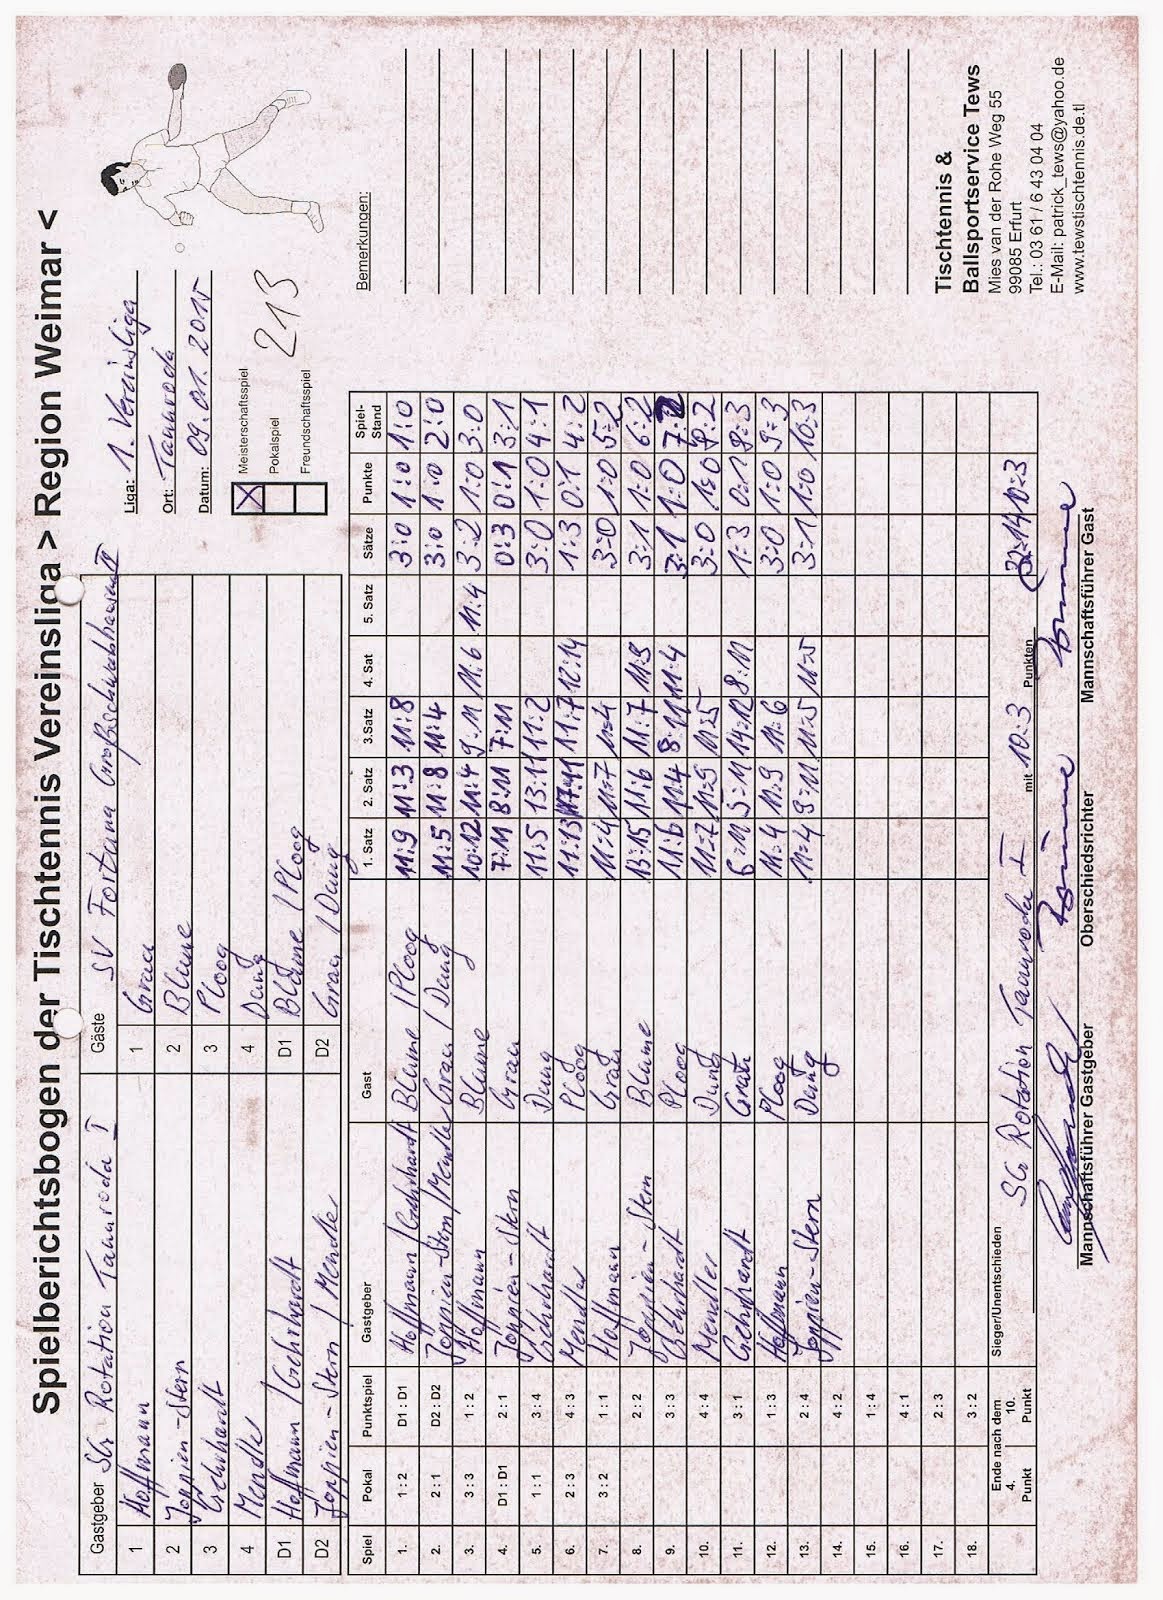 Spielberichtsbogen der Tischtennis Vereinsliga > Region Weimar <
Gastgeber SG Rotation Tannroda I Gäste SV Fortuna
1 Hoffmann 1 Grau
2 Jöppien-Stern 2 Blume
3 Gerhardt 3 Ploog
4 Mendle 4 Dang
D1 Hoffmann / Gerhardt D1 Blume / Ploog
D2 Jöppien-Stern / Mendle D2 Grau / Dang
Liga: 1. Vereinsliga
Ort: Tannroda
Datum: 09.01.2015
X Meisterschaftsspiel
Pokalspiel
Freundschaftsspiel
213
Spiel Pokal Punktspiel Gastgeber Gast 1. Satz 2. Satz 3.Satz 4. Sat 5. Satz Sätze Punkte Spiel-Stand
1. 1 : 2 D1 : D1 Hoffmann / Gerhardt Blume / Ploog 11:9 11:3 11:8 3:0 1:0 1:0
2. 2 : 1 D2 : D2 Jöppien-Stern / Mendle Grau / Dang 11:5 11:8 11:4 3:0 1:0 2:0
3. 3 : 3 1 : 2 Hoffmann Blume 10:12 11:4 9:11 11:6 11:4 3:2 1:0 3:0
4. D1 : D1 2 : 1 Jöppien-Stern Grau 7:11 8:11 7:11 0:3 0:1 3:1
5. 1 : 1 3 : 4 Gerhardt Dang 11:5 13:11 11:2 3:0 1:0 4:1
6. 2 : 3 4 : 3 Mendle Ploog 11:13 11:7 12:14 1:3 0:1 4:2
7. 3 : 2 1 : 1 Hoffmann Grau 11:4 11:7 11:4 3:0 1:0 5:2
8. 2 : 2 Jöppien-Stern Blume 13:15 11:6 11:7 11:9 3:1 1:0 6:2
9. 3 : 3 Gerhardt Ploog 11:6 11:4 8:11 11:4 3:1 1:0 7:2
10. 4 : 4 Mendle Dang 11:7 11:9 11:5 3:0 1:0 8:2
11. 3 : 1 Gerhardt Grau 6:11 5:11 14:12 8:11 1:3 0:1 8:3
12. 1 : 3 Hoffmann Ploog 11:4 11:9 11:6 3:0 1:0 9:3
13. 2 : 4 Jöppien-Stern Dang 11:4 9:11 11:5 11:5 3:1 1:0 10:3
14. 4 : 2
15. 1 : 4
16. 4 : 1
17. 2 : 3
18. 3 : 2
Ende nach dem
4. Punkt 10. Punkt
Sieger/Unentschieden SG Rotation Tannroda I mit 10:3 Punkten 32:14 10:3
Mannschaftsführer Gastgeber Oberschiedsrichter Mannschaftsführer Gast
Bemerkungen:
Tischtennis &
Ballsportservice Tews
Mies van der Rohe Weg 55
99085 Erfurt
Tel.: 03 61 / 6 43 04 04
E-Mail: patrick_tews@yahoo.de
www.tewstischtennis.de.tl